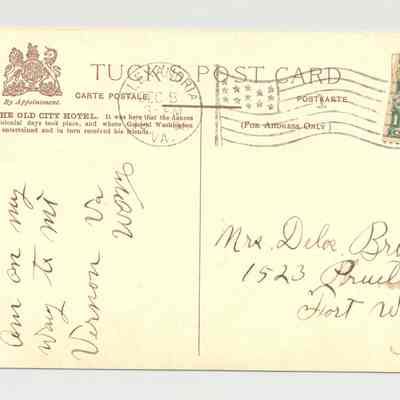 TUCK'S POST CARD
CARTE POSTALE
POSTKARTE
By Appointment.
(FOR ADDRESS ONLY)
THE OLD CITY HOTEL. It was here that the dances
colonial days took place, and where General Washington
entertained and in turn received his friends.
ALEXANDRIA
VA.
Am on my
way to Mt
Vernon Va
Mrs. Deloe Br
1523
Fort W